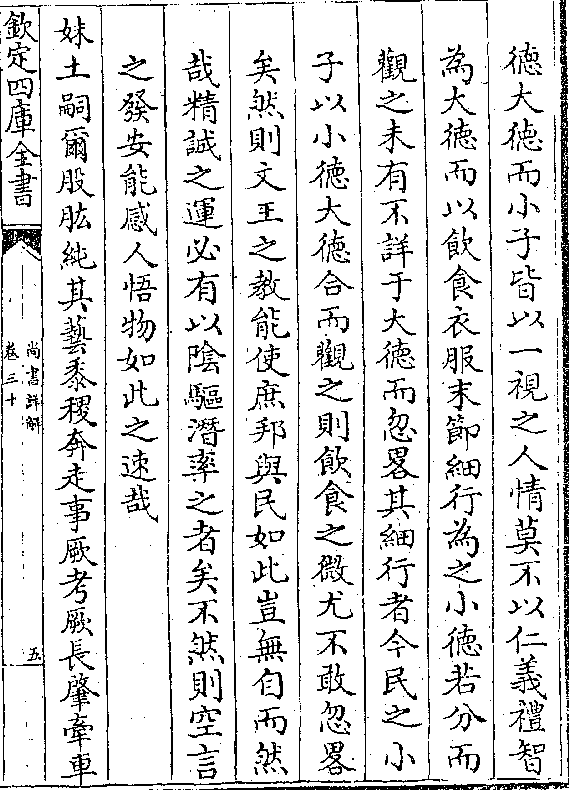 德大德而小子皆以一視之人情莫不以仁義禮智
為大德而以飲食衣服末節細行為之小德若分而
觀之未有不詳于大德而忽畧其細行者今民之小
子以小德大德合而觀之則飲食之微尤不敢忽畧
矣然則文王之教能使庶邦與民如此豈無自而然
哉精誠之運必有以陰驅潛率之者矣不然則空言
之發安能感人悟物如此之速哉
妹土嗣爾股肱純其藝黍稷奔走事厥考厥長肇牽車
欽定四庫全書
尚書詳解
卷三十
五